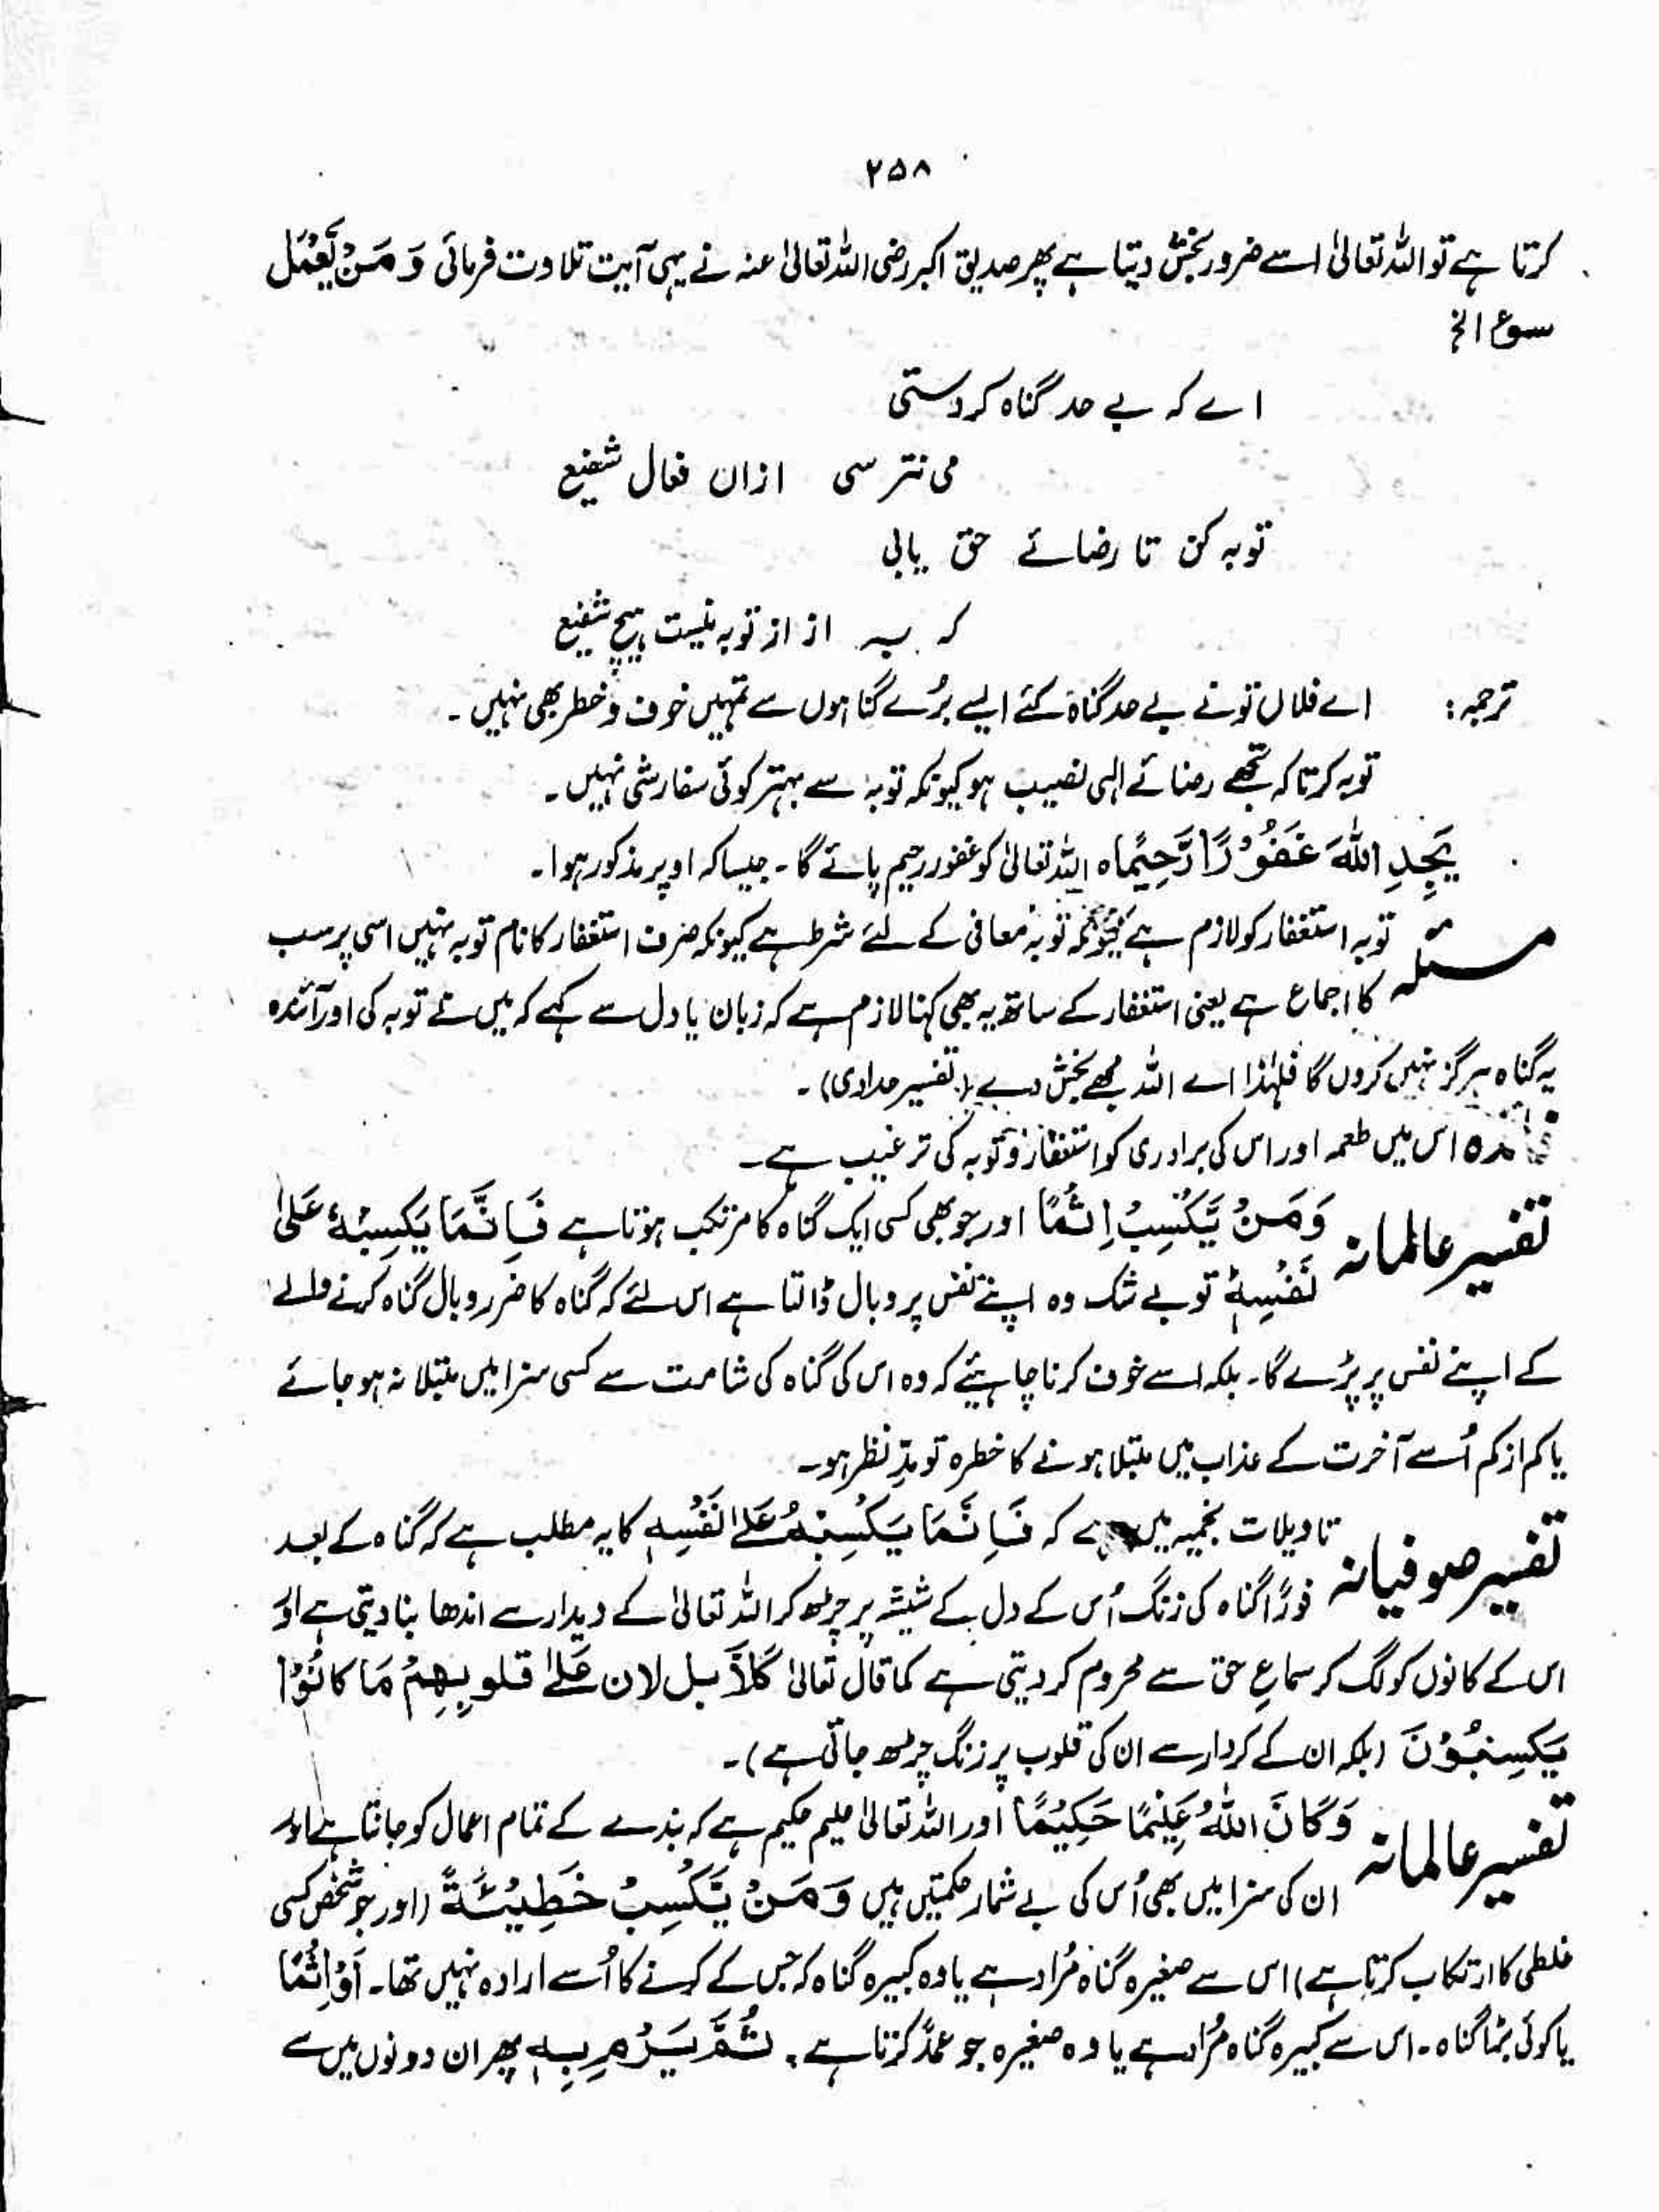 ۲۵۸
کرتا ہے تو اللہ تعالیٰ اسے ضرور بخش دیتا ہے پھر صدیق اکبر رضی اللہ تعالیٰ عنہ نے یہی آیت تلاوت فرمائی وَ مَنْ یَّعْمَلْ
سوع الخ
اے کہ بے حد گناہ کردستی
می نترسی ازان فعال شفیع
توبہ کن تا رضائے حق یابی
کہ بہ از از توبہ نیست ہیچ شفیع
ترجمہ: اے فلاں تونے بے حد گناہ کئے ایسے بُرے گناہوں سے تمہیں خوف و خطر بھی نہیں۔
توبہ کر تاکہ تجھے رضائے الٰہی نصیب ہو کیونکہ توبہ سے بہتر کوئی سفارشی نہیں۔
یَجِدِ اللّٰہَ غَفُوْرًا رَّحِیْمًاہ اللہ تعالیٰ کو غفور رحیم پائے گا۔ جیسا کہ اوپر مذکور ہوا۔
مسئلہ توبہ استغفار کو لازم ہے کیونکہ توبہ معافی کے لئے شرط ہے کیونکہ صرف استغفار کا نام توبہ نہیں اسی پر سب
کا اجماع ہے یعنی استغفار کے ساتھ یہ بھی کہنا لازم ہے کہ زبان یا دل سے کہے کہ میں نے توبہ کی اور آئندہ
یہ گناہ ہرگز نہیں کروں گا فلہٰذا اے اللہ مجھے بخش دے (تفسیر حدادی)۔
فائدہ اس میں طعمہ اور اس کی برادری کو استغفار و توبہ کی ترغیب ہے۔
تفسیر عالمانہ وَمَنْ یَّکْسِبْ اِثْمًا اور جو بھی کسی ایک گناہ کا مرتکب ہوتا ہے فَاِنَّمَا یَکْسِبُہٗ عَلٰی
نَفْسِہٖ تو بے شک وہ اپنے نفس پر وبال ڈالتا ہے اس لئے کہ گناہ کا ضرر و وبال گناہ کرنے والے
کے اپنے نفس پر پڑے گا۔ بلکہ اسے خوف کرنا چاہیئے کہ وہ اس کی گناہ کی شامت سے کسی سزا میں مبتلا نہ ہو جائے
یا کم از کم اُسے آخرت کے عذاب میں مبتلا ہونے کا خطرہ تو مدِّ نظر ہو۔
تفسیر صوفیانہ تاویلات نجمیہ میں ہے کہ فَاِنَّمَا یَکْسِبُہٗ عَلٰی نَفْسِہٖ کا یہ مطلب ہے کہ گناہ کے بعد
فورًا گناہ کی زنگ اُس کے دل کے شیشہ پر چڑھ کر اللہ تعالیٰ کے دیدار سے اندھا بنا دیتی ہے اور
اس کے کانوں کو لگ کر سماعِ حق سے محروم کر دیتی ہے کما قال تعالیٰ کَلَّا بل لان عَلٰی قلوبِہِمْ مَا کَانُوْا
یَکْسِبُوْنَ (بلکہ ان کے کردار سے ان کی قلوب پر زنگ چڑھ جاتی ہے)۔
تفسیر عالمانہ وَکَانَ اللّٰہُ عَلِیْمًا حَکِیْمًا اور اللہ تعالیٰ علیم حکیم ہے کہ بندے کے تمام اعمال کو جانتا ہے اور
ان کی سزا میں بھی اُس کی بے شمار حکمتیں ہیں وَمَنْ یَّکْسِبْ خَطِیْئَۃً (اور جو شخص کسی
غلطی کا ارتکاب کرتا ہے) اس سے صغیرہ گناہ مُراد ہے یا وہ کبیرہ گناہ کہ جس کے کرنے کا اُسے ارادہ نہیں تھا۔ اَوْ اِثْمًا
یا کوئی بڑا گناہ۔ اس سے کبیرہ گناہ مُراد ہے یا وہ صغیرہ جو عمدًا کرتا ہے۔ ثُمَّ یَرْمِ بِہٖ پھر ان دونوں میں سے